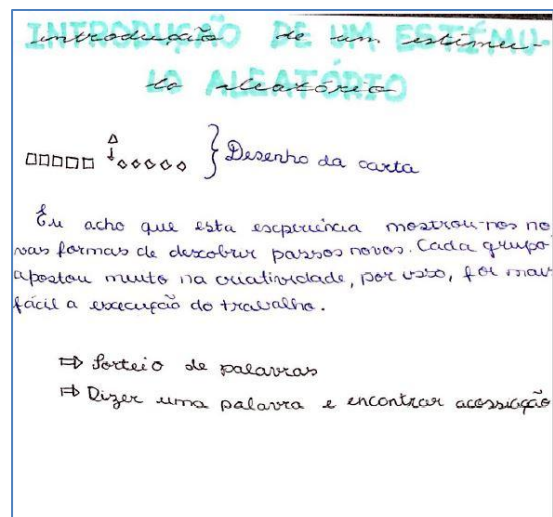 Introdução de um estímu-
lo aleatório
Desenho da carta
Eu acho que esta experiência mostrou-nos no
vas formas de descobrir passos novos. Cada grupo
apostou muito na criatividade, por isso, foi mais
fácil a execução do trabalho.
⇒ Sorteio de palavras
⇒ Dizer uma palavra e encontrar acossiação